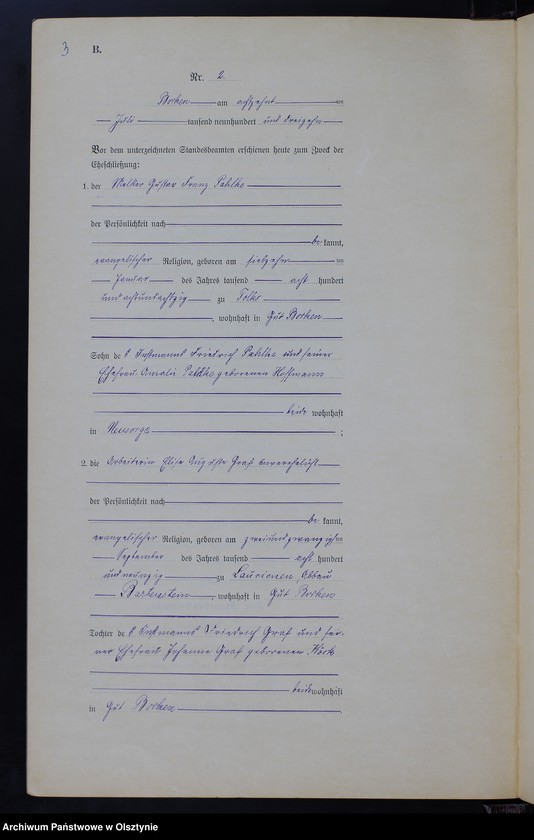 3 B.
Nr. 2
Borken am achtzehnten
Juli tausend neunhundert und dreizehn
Vor dem unterzeichneten Standesbeamten erschienen heute zum Zweck der
Eheschließung:
1. der Melker Gustav Franz Pahlke
der Persönlichkeit nach
be kannt,
evangelischer Religion, geboren am siebzehnten
Januar des Jahres tausend acht hundert
und achtundachtzig zu
, wohnhaft in Gut Borken
Sohn des Instmanns Friedrich Pahlke und seiner
Ehefrau Amalie Pahlke geborenen Hoffmann
beide wohnhaft
in Neusorge ;
2. die Arbeiterin Elise Auguste Graf unverehelicht
der Persönlichkeit nach
be kannt,
evangelischer Religion, geboren am zweiundzwanzigsten
September des Jahres tausend acht hundert
und neunzig zu Abbau
Bartenstein, wohnhaft in Gut Borken
Tochter des Instmanns Friedrich Graf und sei-
ner Ehefrau Johanne Graf geborenen
beide wohnhaft
in Gut Borken.
Archiwum Państwowe w Olsztynie